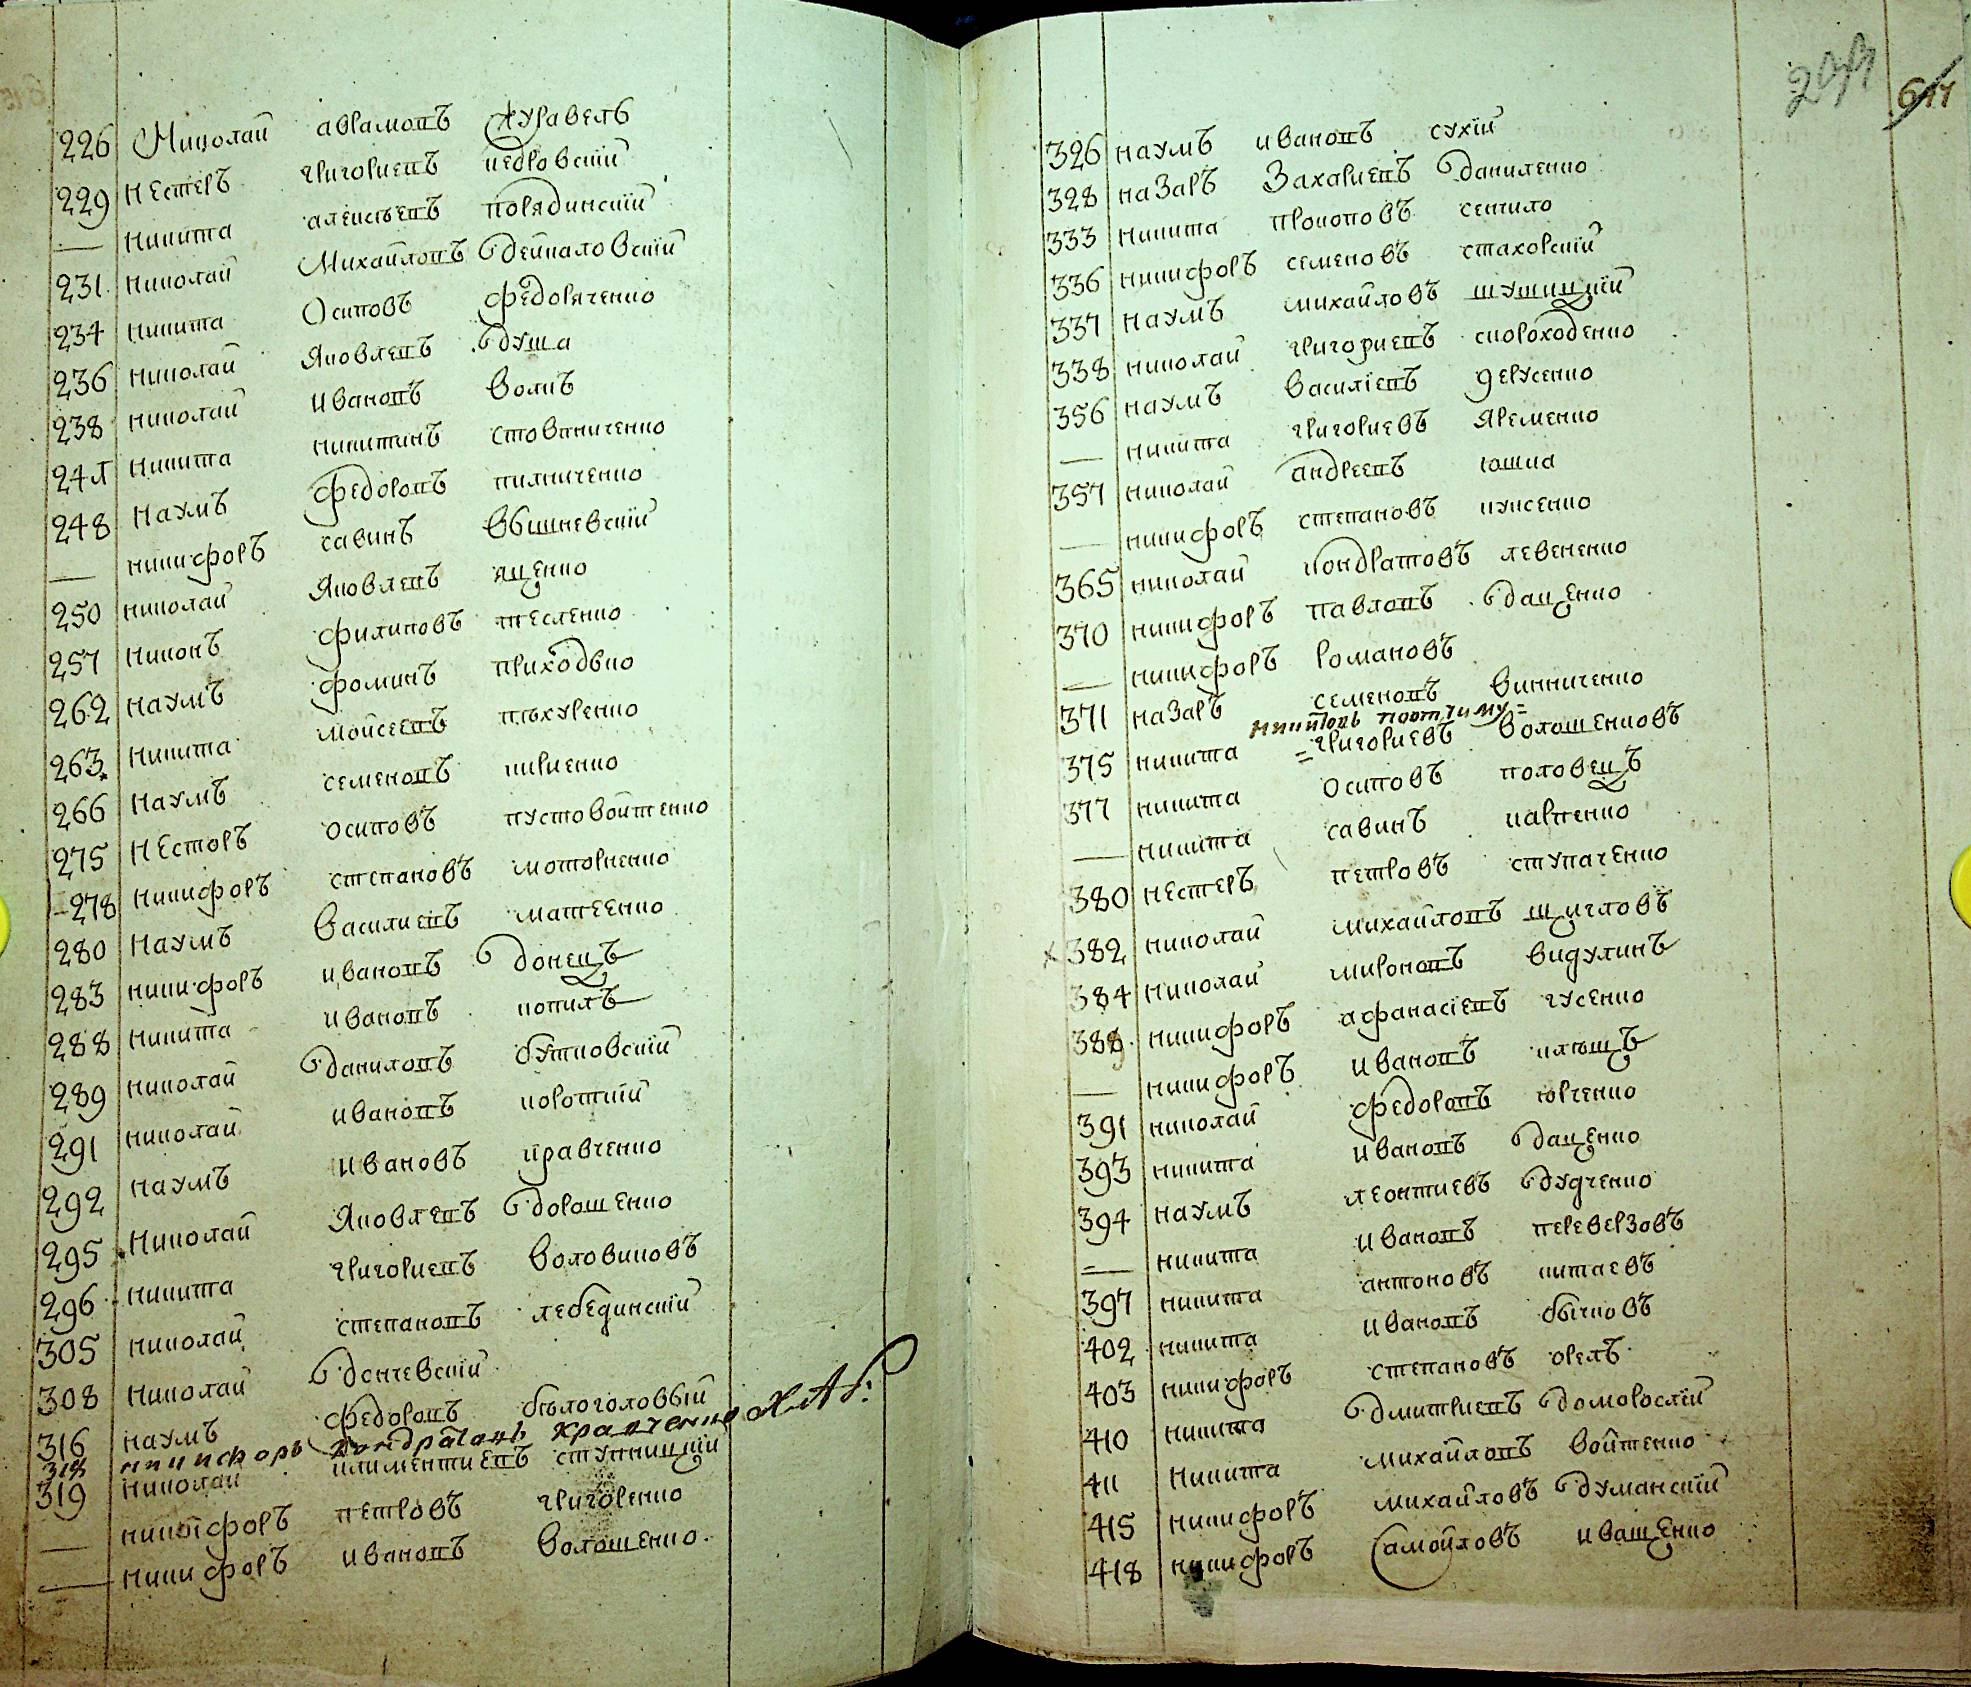 226 Николай аврамовъ журавель
229 нестеръ григориевъ кедровский
— никита алексѣевъ порядинский
231 николай Михайловъ дейкаловский
234 никита Осиповъ федоряченко
236 николай Яковлевъ душа
238 николай ивановъ вовкъ
241 никита никитинъ стовпниченко
248 наумъ федоровъ пилипченко
— никифоръ савинъ вышневский
250 николай Яковлевъ яценко
257 никонъ филиповъ тесленко
262 наумъ фоминъ приходько
263 никита мойсеевъ пѣхуренко
266 наумъ семеновъ кириенко
275 несторъ осиповъ пустовойтенко
278 никифоръ степановъ моторненко
280 наумъ василиевъ матвеенко
283 никифоръ ивановъ донецъ
288 никита ивановъ копилъ
289 николай даниловъ бутковский
291 николай ивановъ короткий
292 наумъ ивановъ кравченко
295 Николай Яковлевъ дорошенко
296 никита григориевъ воловиковъ
305 николай степановъ лебединский
308 николай дончевский
316 наумъ федоровъ бѣлоголовый
318 никифоръ кондратовъ кравченко
319 николай климентиевъ ступницкий
— никифоръ петровъ григоренко
— никифоръ ивановъ волошенко
326 наумъ ивановъ сухий
328 назаръ Захариевъ даниленко
333 никита прокоповъ
336 никифоръ семеновъ стаховский
337 наумъ михайловъ шушицкий
338 николай григориевъ скороходенко
356 наумъ василиевъ дерусенко
— никита григориевъ яременко
357 николай андреевъ юшка
— никифоръ степановъ
365 николай кондратовъ левененко
370 никифоръ павловъ даценко
— никифоръ романовъ
371 назаръ семеновъ винниченко
375 никита григориевъ волошенковъ
377 никита осиповъ половецъ
— никита савинъ карпенко
380 нестеръ петровъ ступаченко
382 николай михайловъ щигловъ
384 николай мироновъ видулинъ
388 никифоръ афанасиевъ гусенко
— никифоръ ивановъ клющъ
391 николай федоровъ юрченко
393 никита ивановъ даценко
394 наумъ леонтиевъ дудченко
— никита ивановъ переверзовъ
397 никита антоновъ китаевъ
402 никита ивановъ бычковъ
403 никифоръ степановъ орелъ
410 никита дмитриевъ доморослий
411 никита михайловъ войтенко
415 никифоръ михайловъ думанский
418 никифоръ самойловъ иващенко